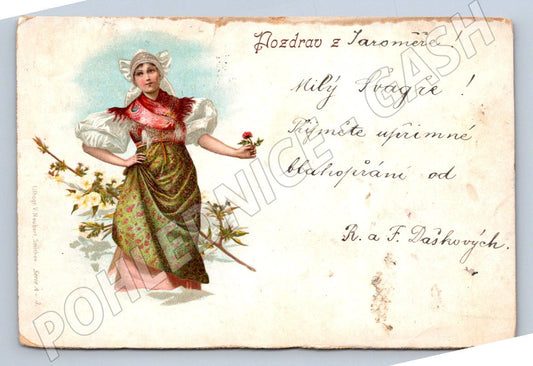 Pozdrav z Jaroměře!
Milý Švagře!
Přijměte upřímné
blahopřání od
R. a F. Daškových.
Lithogr. V. Neubert, Smíchov. Serie 4 - 3.
POHLEDNICE - CASH